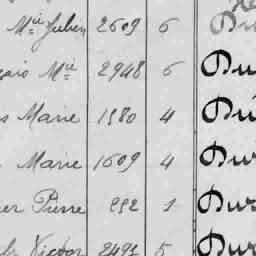 Mie Julien 2609 6 Du
Mie 2948 6 Du
Marie 1580 4 Du
Marie 1609 4 Dur
Pierre 292 1 Dur
Victor 2491 5 Dur